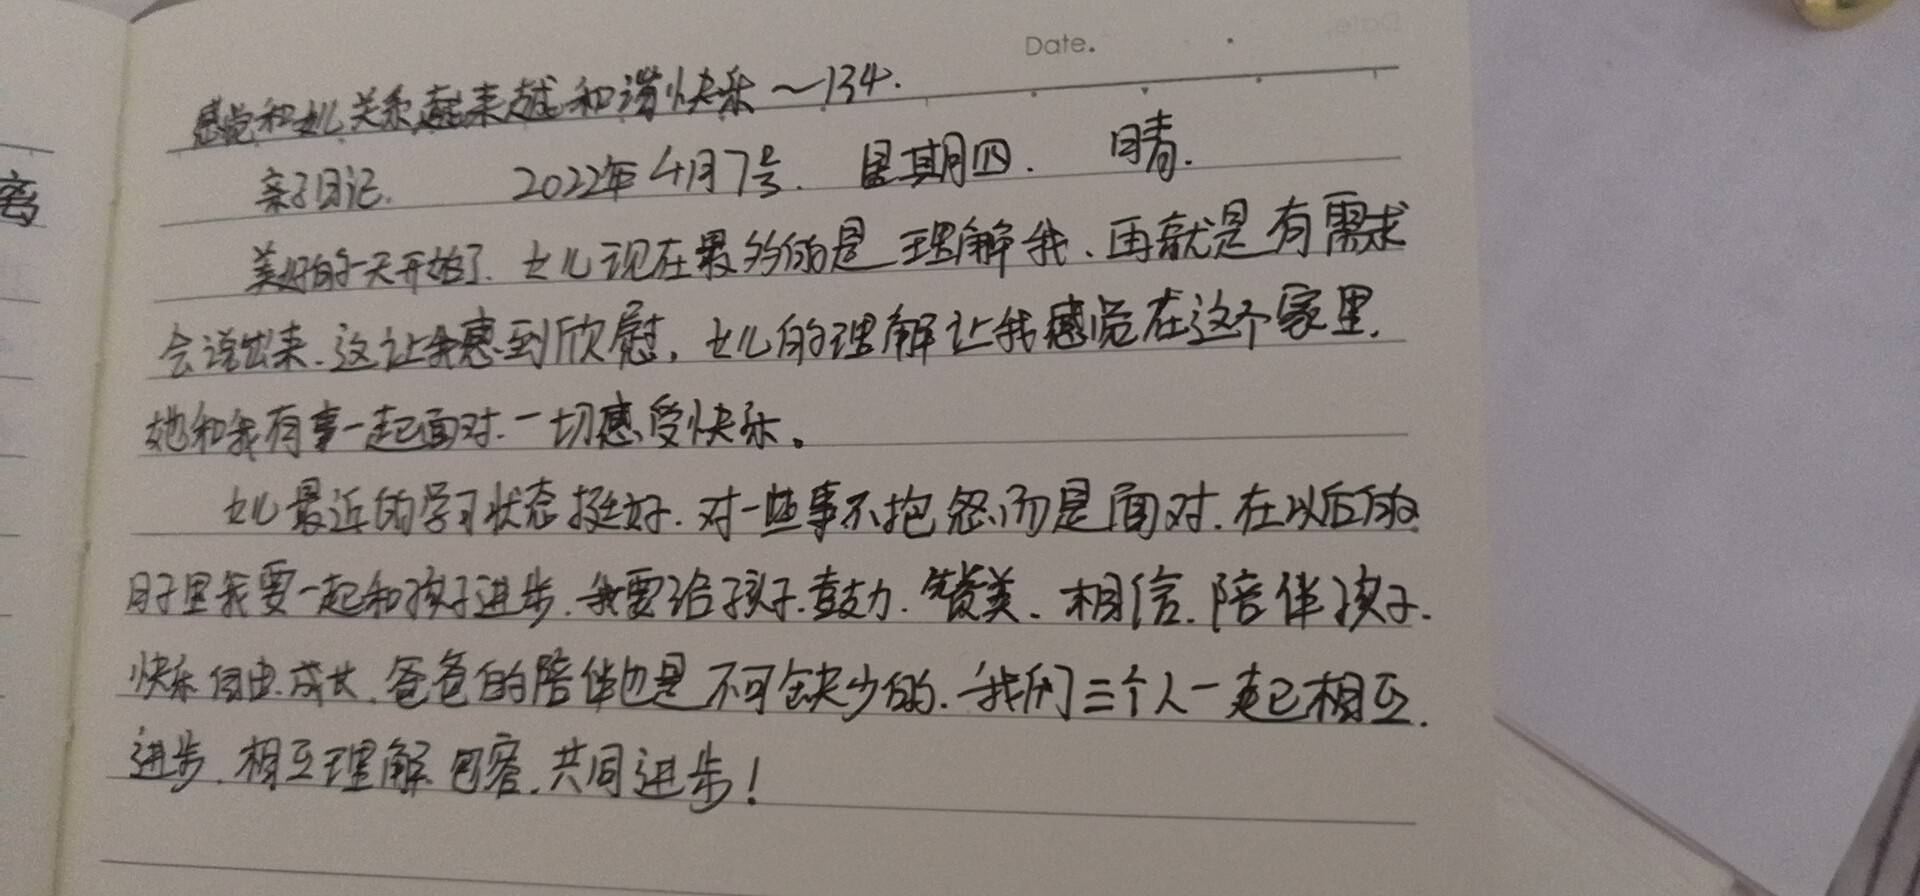 Date.
感觉和女儿关系越来越和谐快乐～134.
亲子日记. 2022年4月7号. 星期四. 晴.
美好的一天开始了. 女儿现在最多的是理解我、再就是有需求
会说出来.这让我感到欣慰，女儿的理解让我感觉在这个家里.
她和我有事一起面对.一切感受快乐。
女儿最近的学习状态挺好.对一些事不抱怨而是面对.在以后的
日子里我要一起和孩子进步.我要给孩子.鼓力.赞美、相信.陪伴孩子.
快乐自由.成长.爸爸的陪伴也是不可缺少的.我们三个人一起相互.
进步.相互理解.包容.共同进步！
离